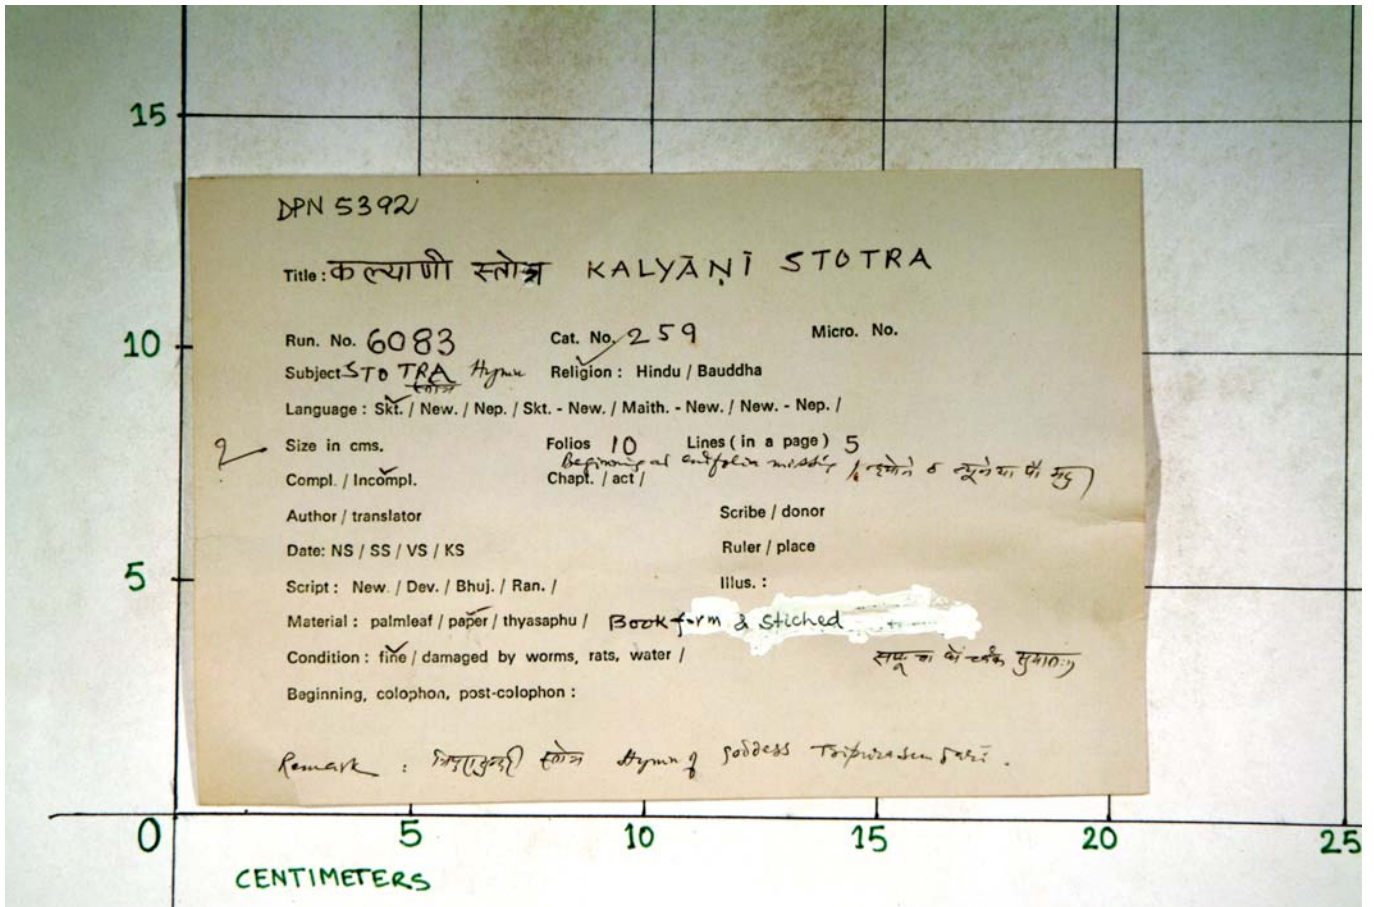 15
DPN 5392
Title: कल्याणी स्तोत्र KALYĀṆĪ STOTRA
10
Run. No. 6083 Cat. No. 259 Micro. No.
Subject STOTRA Hymn Religion : Hindu / Bauddha
स्तोत्र
Language : Skt. / New. / Nep. / Skt. - New. / Maith. - New. / New. - Nep. /
Size in cms. Folios 10 Lines ( in a page ) 5
Beginning and endfolio missing
Compl. / Incompl. Chapt. / act /
Author / translator Scribe / donor
Date: NS / SS / VS / KS Ruler / place
5
Script : New. / Dev. / Bhuj. / Ran. / Illus. :
Material : palmleaf / paper / thyasaphu / Book form & stiched
Condition : fine / damaged by worms, rats, water /
Beginning, colophon, post-colophon :
Remark : त्रिपुरासुन्दरी स्तोत्र Hymn of Goddess Tripurasundari.
0 5 10 15 20 25
CENTIMETERS